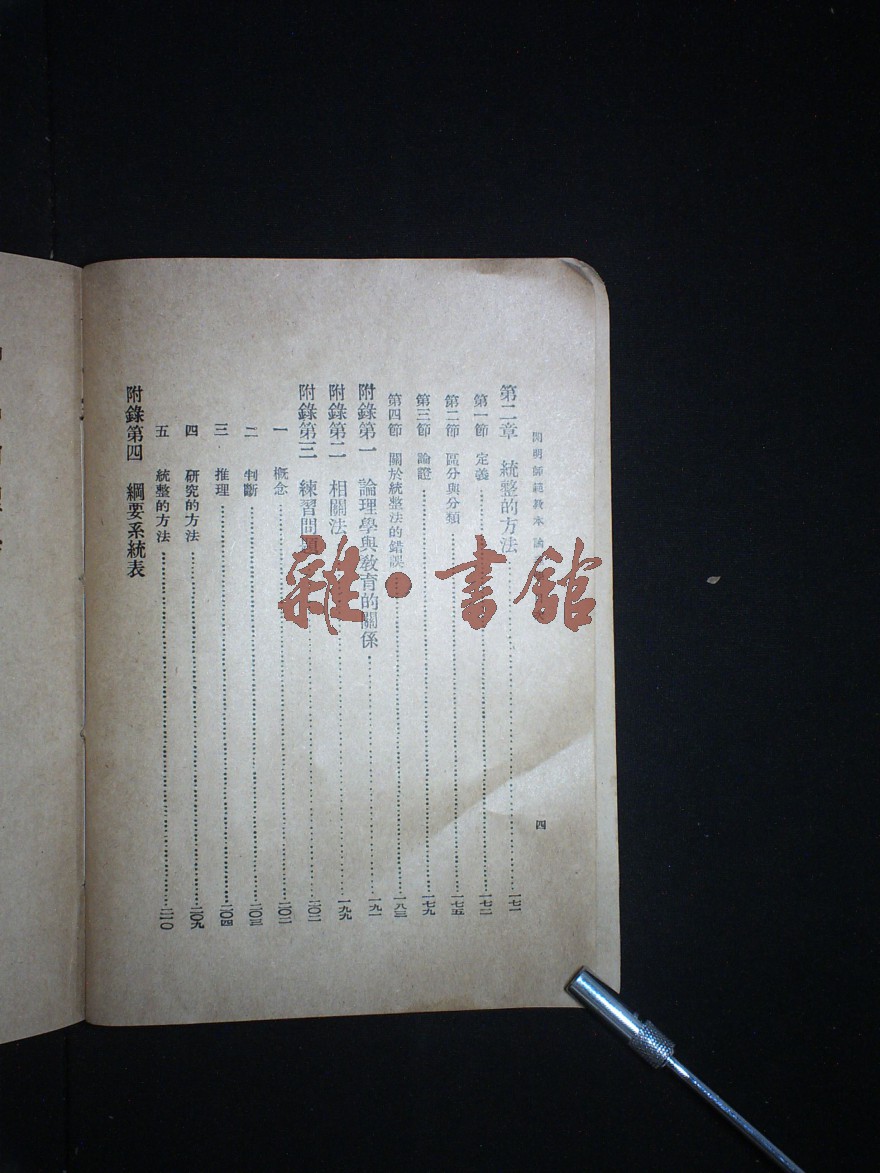 開明師範教本 論
四
第二章 統整的方法……一七一
第一節 定義……一七二
第二節 區分與分類……一七五
第三節 論證……一七九
第四節 關於統整法的錯誤……一八三
附錄第一 論理學與教育的關係……一九一
附錄第二 相關法……一九九
附錄第三 練習問題……二〇二
一 概念……二〇二
二 判斷……二〇三
三 推理……二〇四
四 研究的方法……二〇九
五 統整的方法……二一〇
附錄第四 綱要系統表
雜·書館